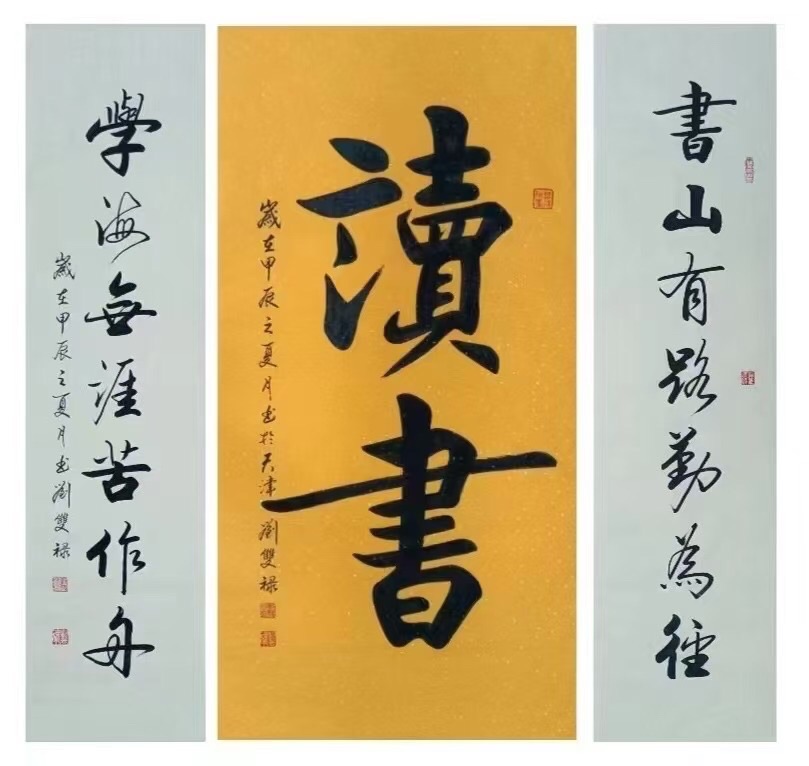 書山有路勤為徑
讀書
歲在甲辰之夏月書於天津 劉雙禄
學海無涯苦作舟
歲在甲辰之夏月書 劉雙禄